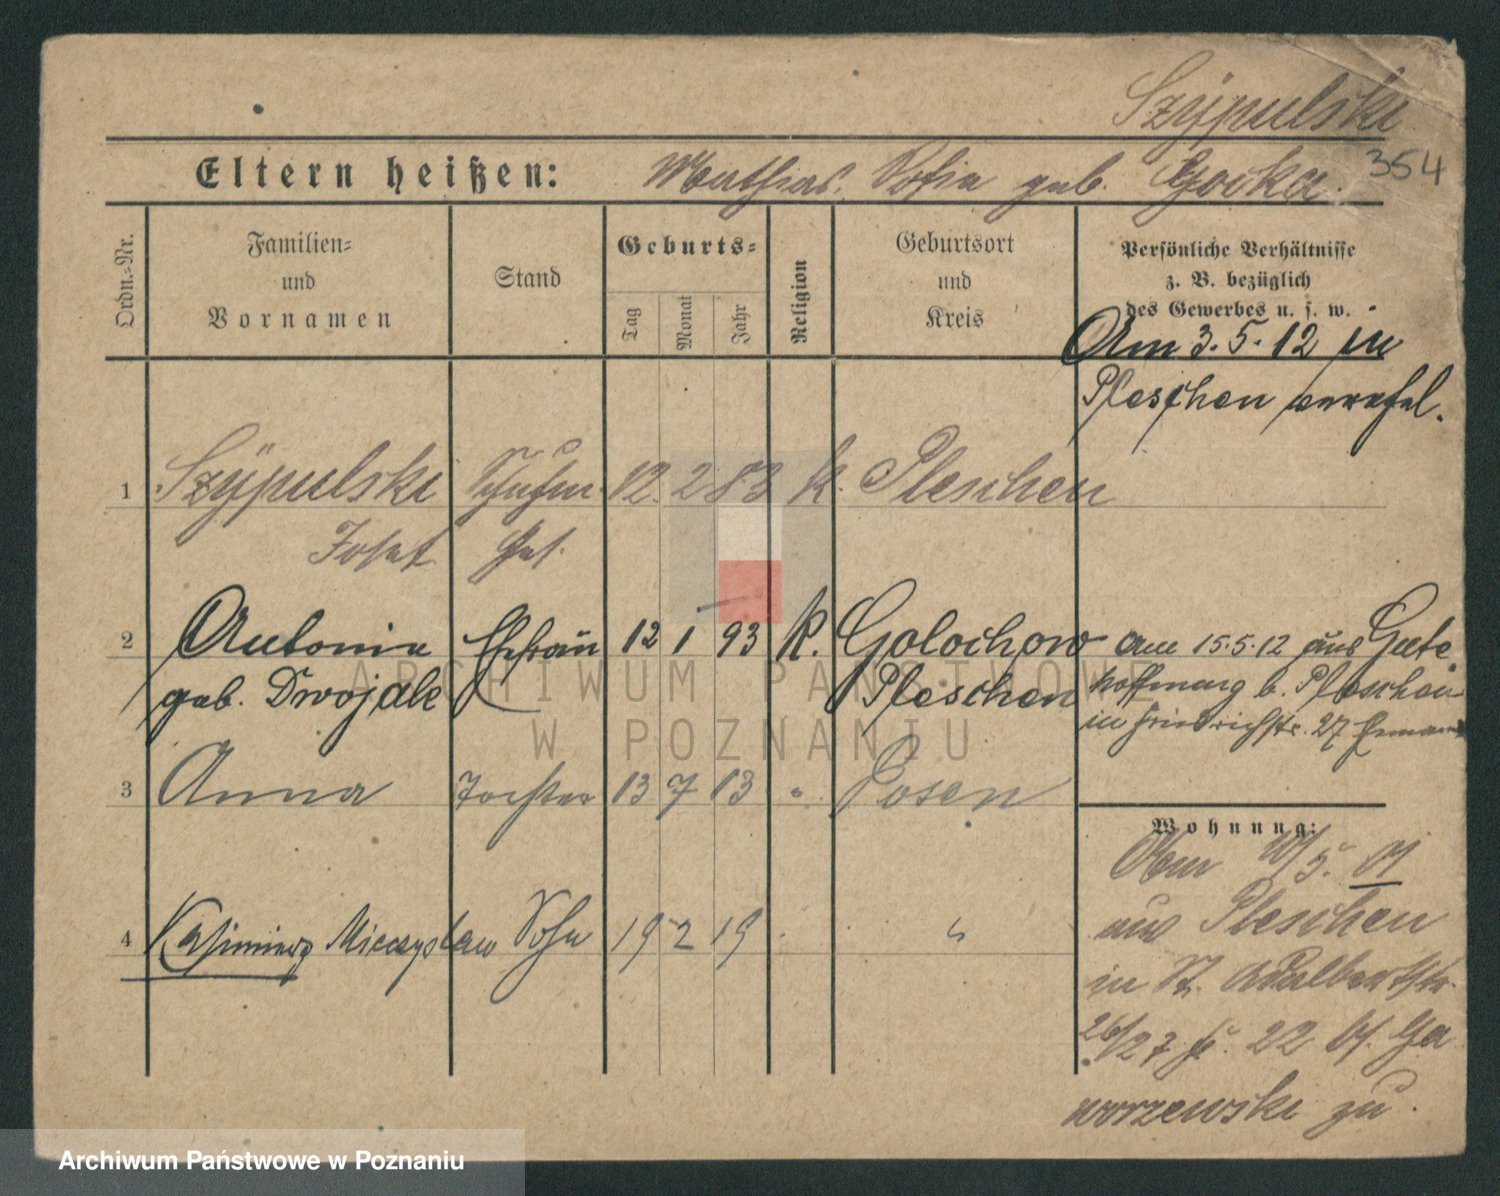 Szÿpulski
354
Eltern heißen: Mathias. Sofia geb. Gocka.
Ordn.-Nr.
Familien-
und
Vornamen
Stand
Geburts-
Tag
Monat
Jahr
Religion
Geburtsort
und
Kreis
Persönliche Verhältnisse
z. B. bezüglich
des Gewerbes u. s. w.
Am 3.5.12 in
Pleschen verehel.
1 Szÿpulski 12. 2 83 k. Pleschen
Josef
2 Antonia Ehefrau 12 1 93 k. Golochow
geb. Dwojak Pleschen
am 15.5.12 aus Gute
hoffnung b. Pleschen
in Friedrichstr. 27
3 Anna Tochter 13 7 13 " Posen
4 Kasimierz Mieczyslaw Sohn 19 2 19 "
Wohnung:
10/5. 01
aus Pleschen
in St. Adalbertstr.
26/27 22 bf. Ga
worzewski zu.
ARCHIWUM PAŃSTWOWE
W POZNANIU
Archiwum Państwowe w Poznaniu